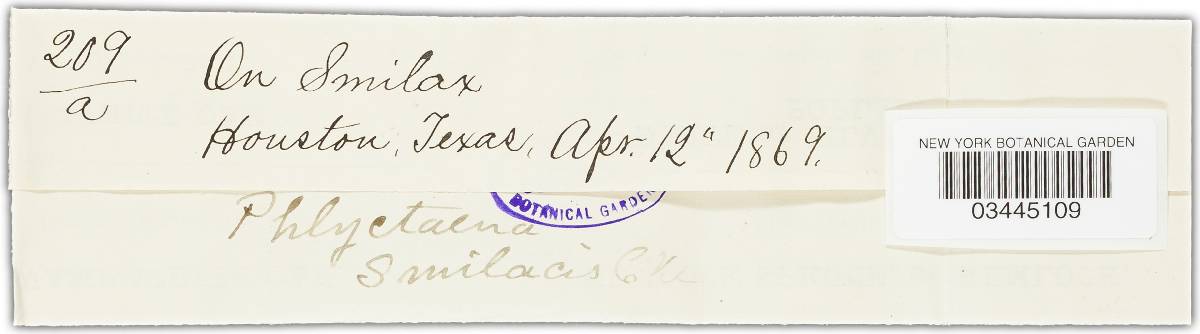 209
a
On Smilax
Houston, Texas, Apr. 12" 1869.
NEW YORK BOTANICAL GARDEN
03445109
BOTANICAL GARDEN
Phlyctaena
Smilacis Cke